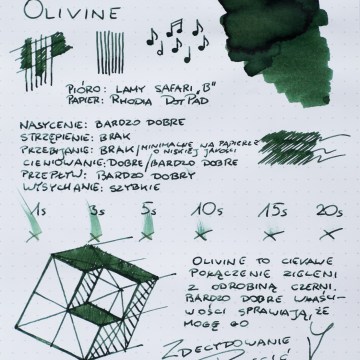 OLIVINE
PIÓRO: LAMY SAFARI „B"
PAPIER: RHODIA DOTPAD
NASYCENIE: BARDZO DOBRE
STRZĘPIENIE: BRAK
PRZEBIJANIE: BRAK/MINIMALNE NA PAPIERZE O NISKIEJ JAKOŚCI
CIENIOWANIE: DOBRE/BARDZO DOBRE
PRZEPŁYW: BARDZO DOBRY
WYSYCHANIE: SZYBKIE
1s 3s 5s 10s 15s 20s
OLIVINE TO CIEKAWE
POŁĄCZENIE ZIELENI
Z ODROBINĄ CZERNI.
BARDZO DOBRE WŁAŚCI-
WOŚCI SPRAWIAJĄ, ŻE
MOGĘ GO
ZDECYDOWANIE